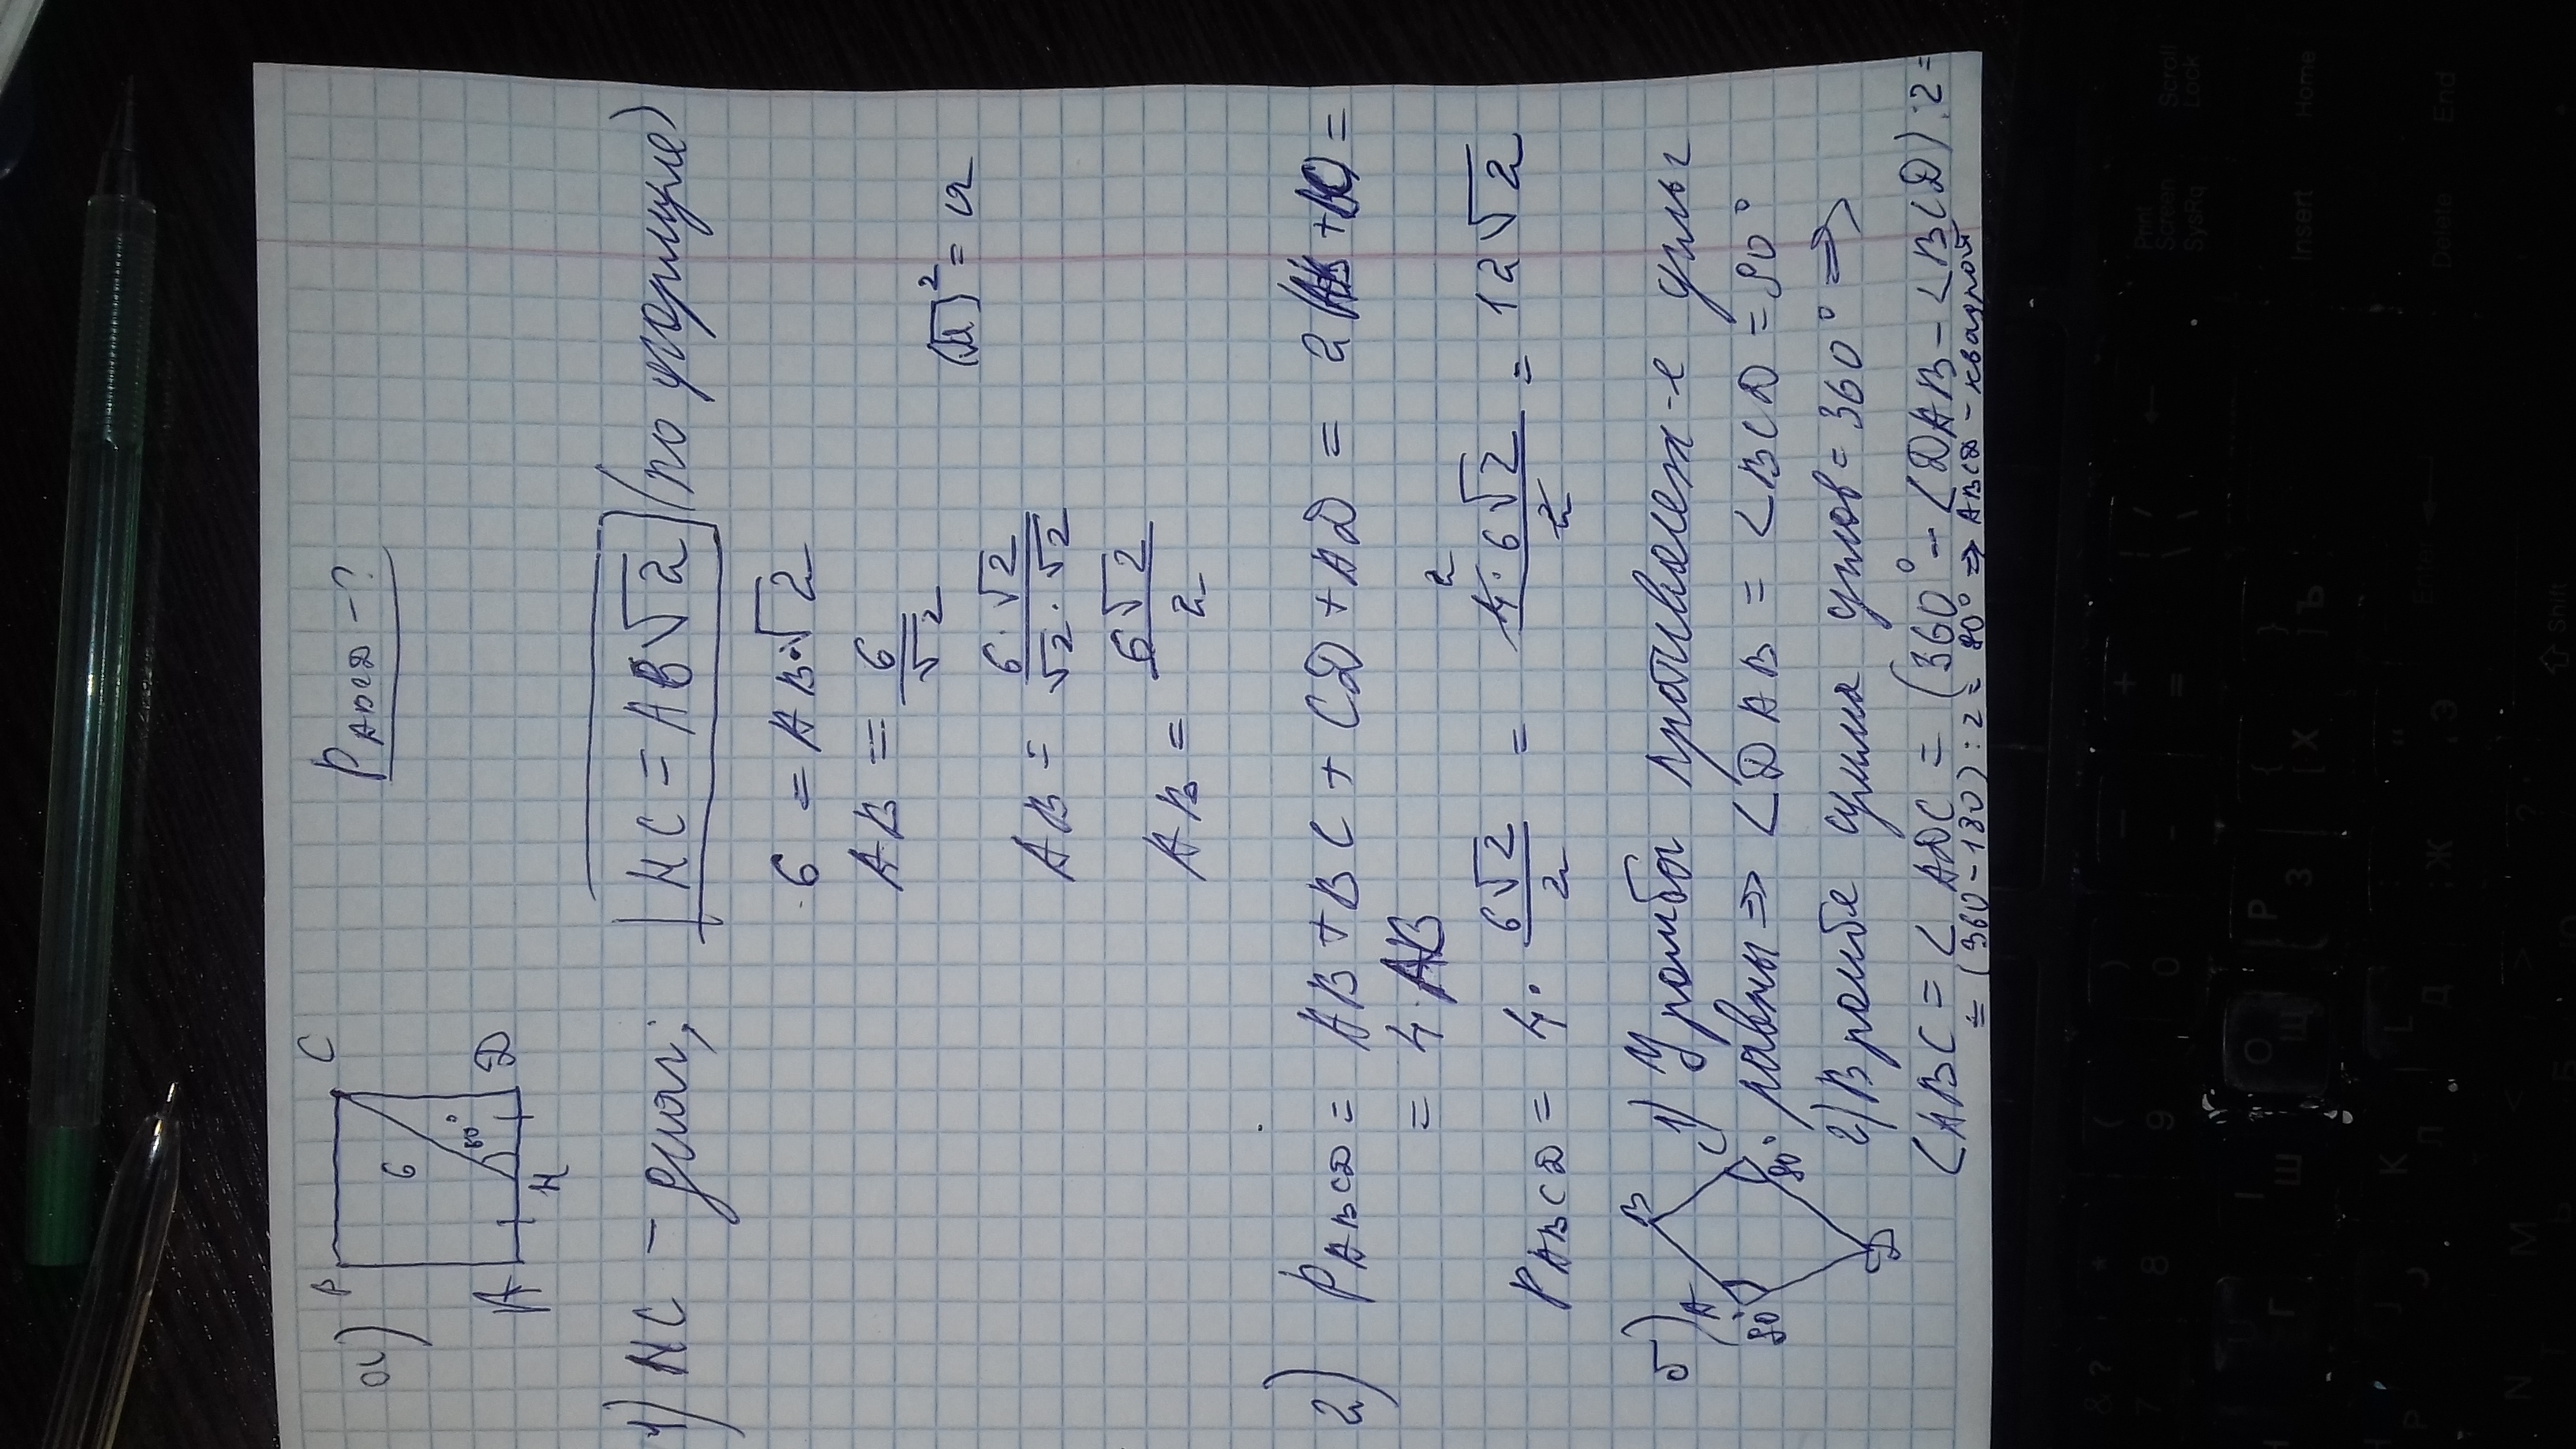 а) B C
6
60°
A H Д
P ABCД - ?
1) HC - диаг; HC = AB√2 (по формуле)
6 = AB·√2
AB = 6/√2
(√a)² = a
AB = 6·√2/√2·√2
AB = 6√2/2
2) P ABCД = AB + BC + CД + AД = 2(AB+BC) =
= 4·AB
P ABCД = 4 · 6√2/2 = 4·6√2/2 = 12√2
2
б) A B C Д
90° 90°
1) У ромба противолеж-е углы
равны => <ДAB = <BCД = 90°
2) В ромбе сумма углов = 360° =>
<ABC = <AДC = (360° - <ДAB - <BCД):2 =
= (360-180):2 = 90° => ABCД - квадрат